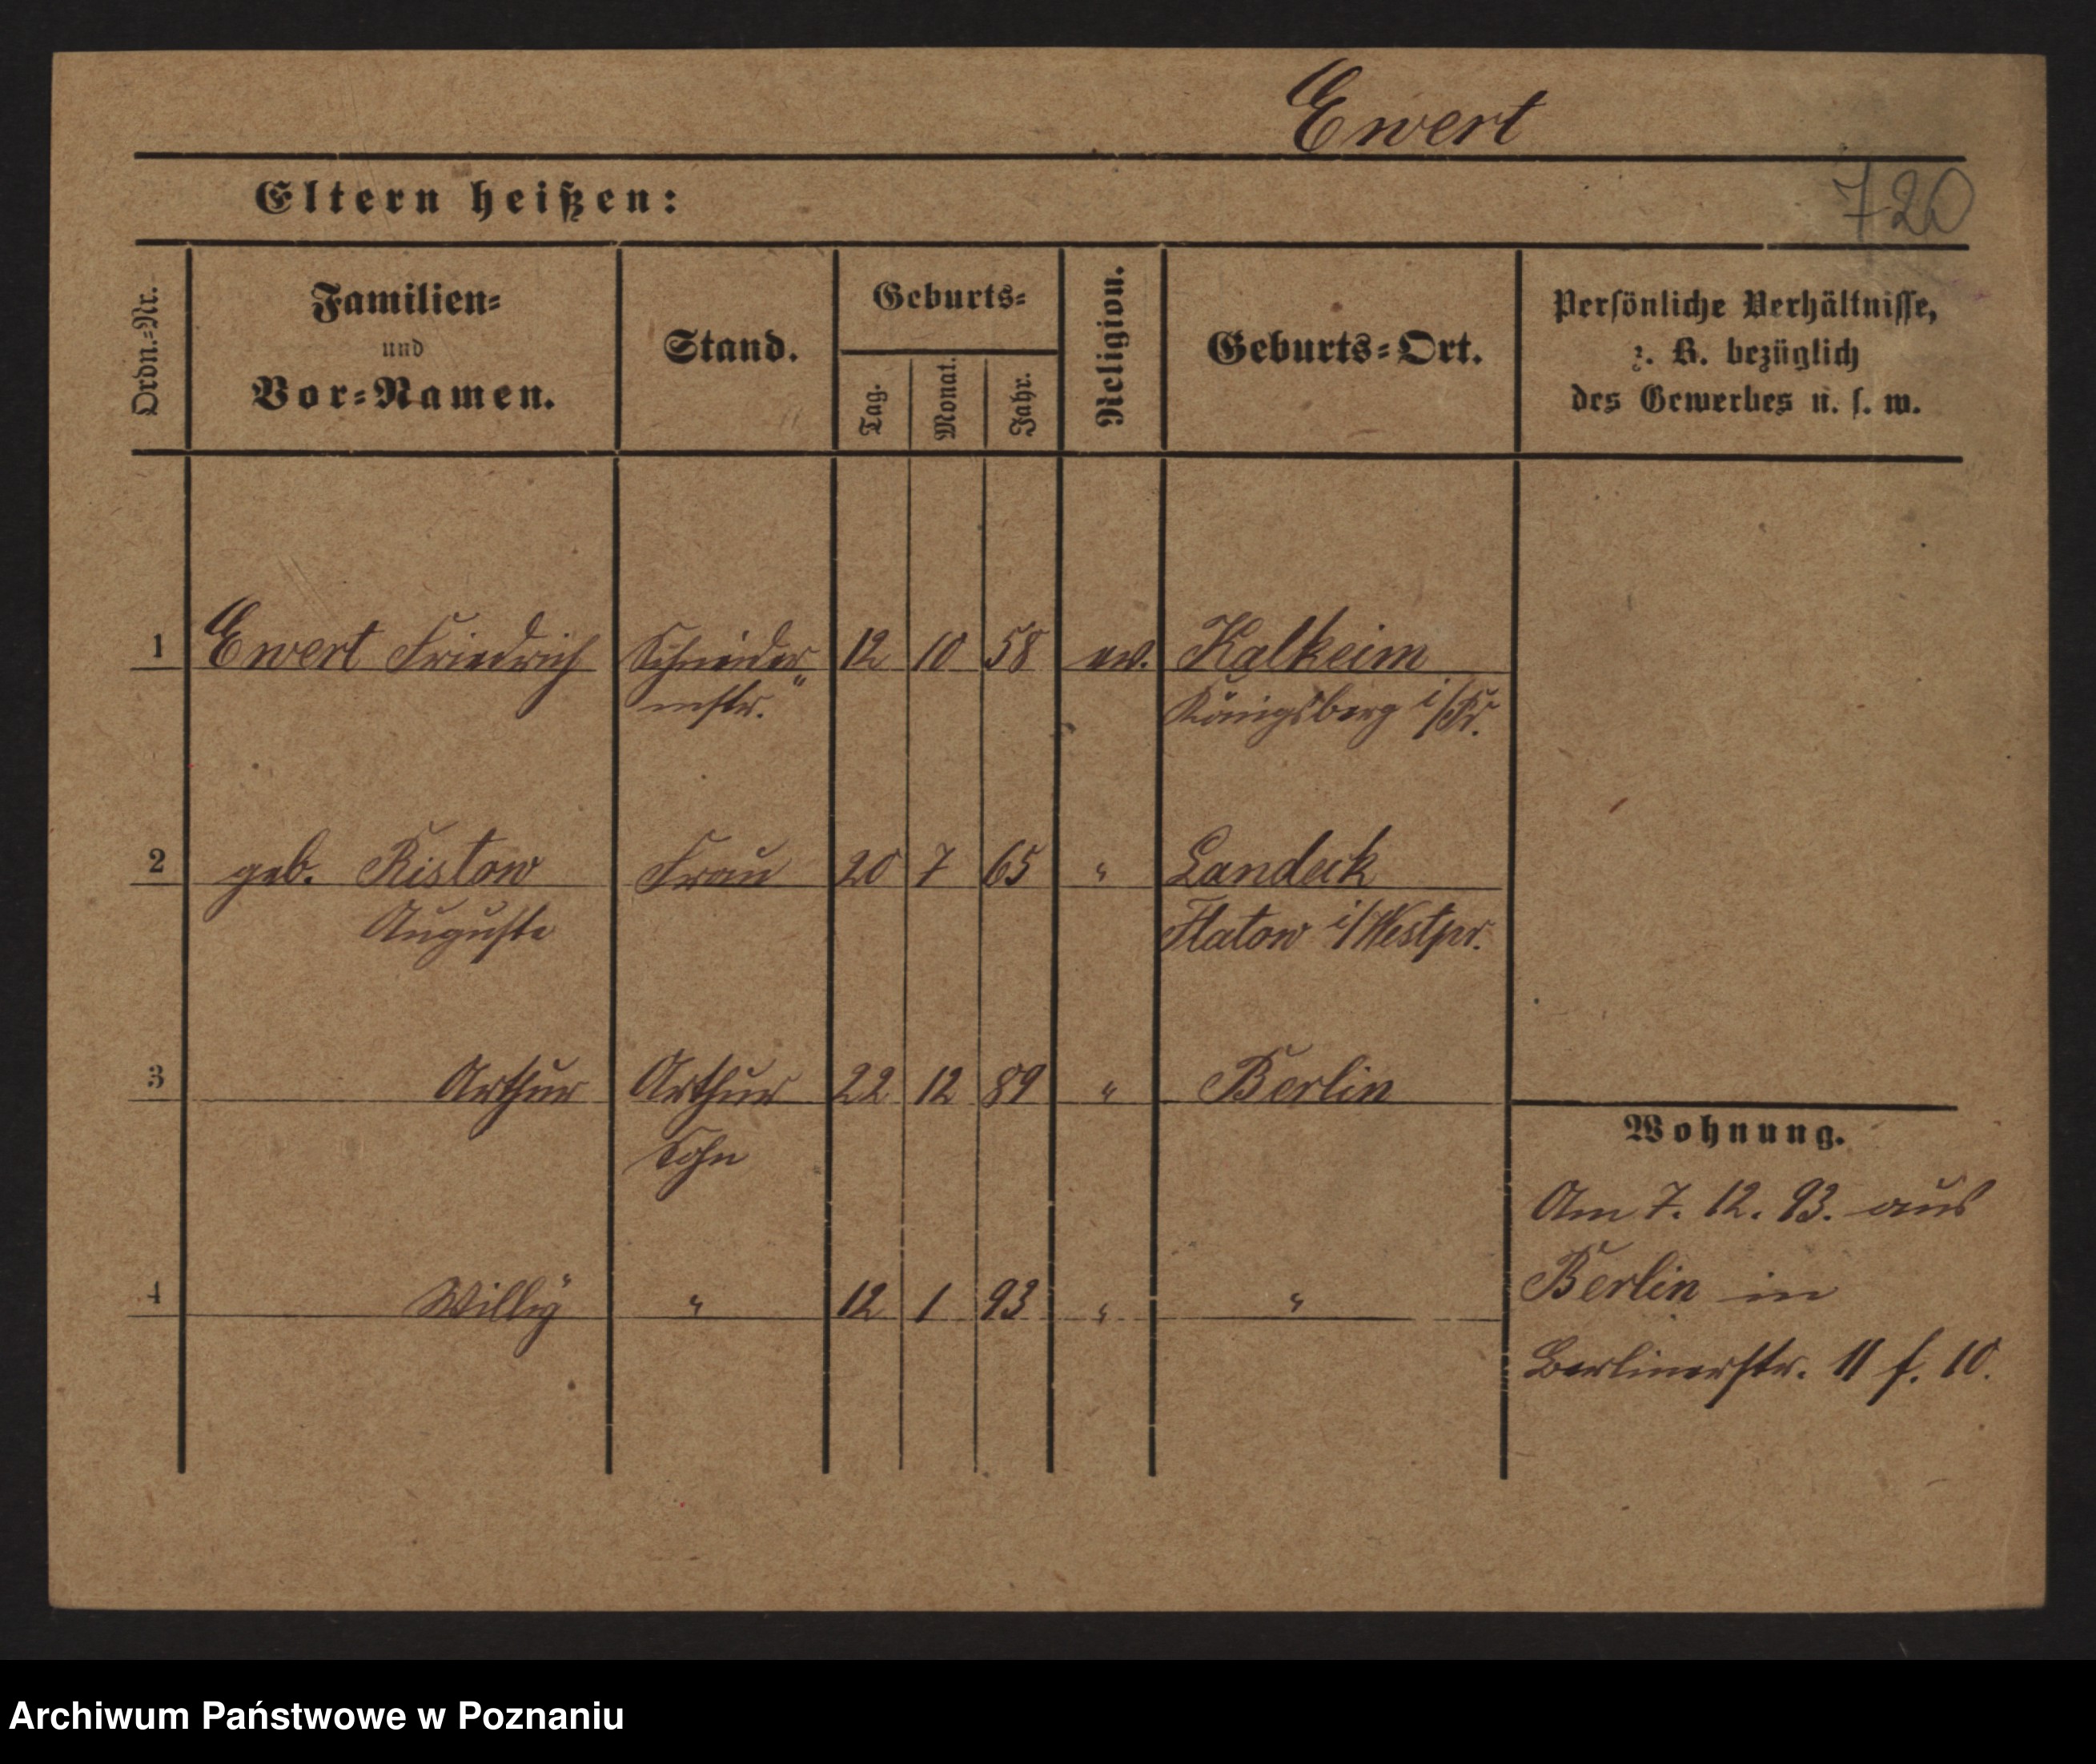 Ewert
Eltern heißen:
720
Ordn.=Nr.
Familien=
und
Vor=Namen.
Stand.
Geburts=
Tag.
Monat.
Jahr.
Religion.
Geburts=Ort.
Persönliche Verhältnisse,
z. B. bezüglich
des Gewerbes u. s. w.
1 Ewert Friedrich Schneider 12 10 58 ev. Kalkeim
mstr. Königsberg i/Pr.
2 geb. Ristow Frau 20 7 65 " Landeck
Auguste Flatow i/Westpr.
3 Arthur Arthur 22 12 89 " Berlin
Sohn
4 Willy " 12 1 93 " "
Wohnung.
Am 7. 12. 93. aus
Berlin in
Berlinerstr. 11 f. 10.
Archiwum Państwowe w Poznaniu